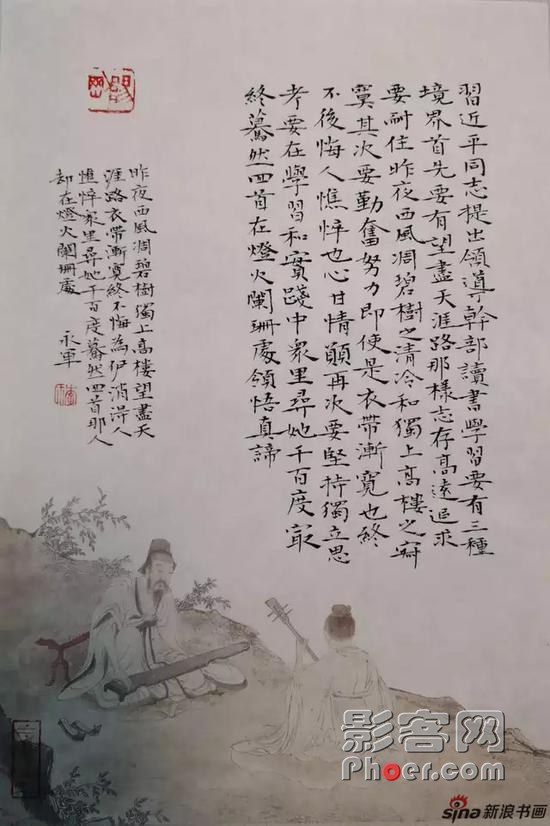 習近平同志提出領導幹部讀書學習要有三種
境界首先要有望盡天涯路那樣志存高遠追求
要耐住昨夜西風凋碧樹之清冷和獨上高樓之寂
寞其次要勤奮努力即使是衣帶漸寬也終
不後悔人憔悴也心甘情願再次要堅持獨立思
考要在學習和實踐中衆里尋她千百度最
終驀然回首在燈火闌珊處領悟真諦
昨夜西風凋碧樹獨上高樓望盡天
涯路衣帶漸寬終不悔為伊消得人
憔悴衆里尋她千百度驀然回首那人
却在燈火闌珊處
永軍
影客网
Phoer.com
sina新浪书画